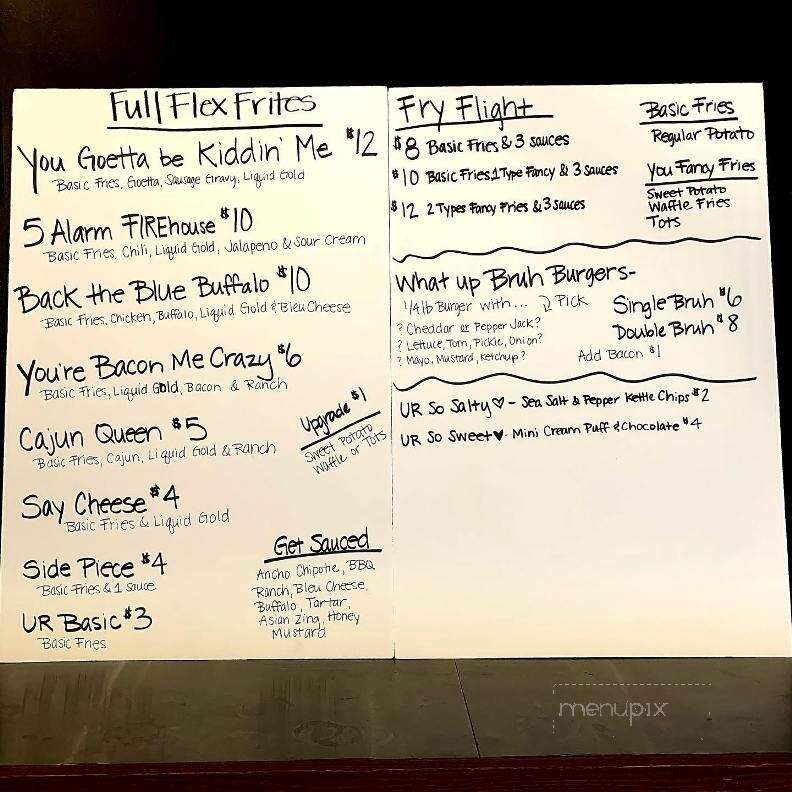 Full Flex Frites
You Goetta be Kiddin' Me $12
Basic Fries, Goetta, Sausage Gravy, Liquid Gold
5 Alarm FIREhouse $10
Basic Fries, Chili, Liquid Gold, Jalapeno & Sour Cream
Back the Blue Buffalo $10
Basic Fries, Chicken, Buffalo, Liquid Gold & Bleu Cheese
You're Bacon Me Crazy $6
Basic Fries, Liquid Gold, Bacon & Ranch
Cajun Queen $5
Basic Fries, Cajun, Liquid Gold & Ranch
Upgrade $1
Sweet Potato
Waffle or Tots
Say Cheese $4
Basic Fries & Liquid Gold
Side Piece $4
Basic Fries & 1 sauce
UR Basic $3
Basic Fries
Get Sauced
Ancho Chipotle, BBQ
Ranch, Bleu Cheese,
Buffalo, Tartar,
Asian Zing, Honey
Mustard
Fry Flight
$8 Basic Fries & 3 sauces
$10 Basic Fries, 1 Type Fancy & 3 sauces
$12 2 Types Fancy Fries & 3 sauces
Basic Fries
Regular Potato
You Fancy Fries
Sweet Potato
Waffle Fries
Tots
What up Bruh Burgers-
1/4 lb Burger with... Pick
? Cheddar or Pepper Jack?
? Lettuce, Tom, Pickle, Onion?
? Mayo, Mustard, Ketchup?
Single Bruh $6
Double Bruh $8
Add Bacon $1
UR So Salty ♡ - Sea Salt & Pepper Kettle Chips $2
UR So Sweet ♥ - Mini Cream Puff & Chocolate $4
menupix